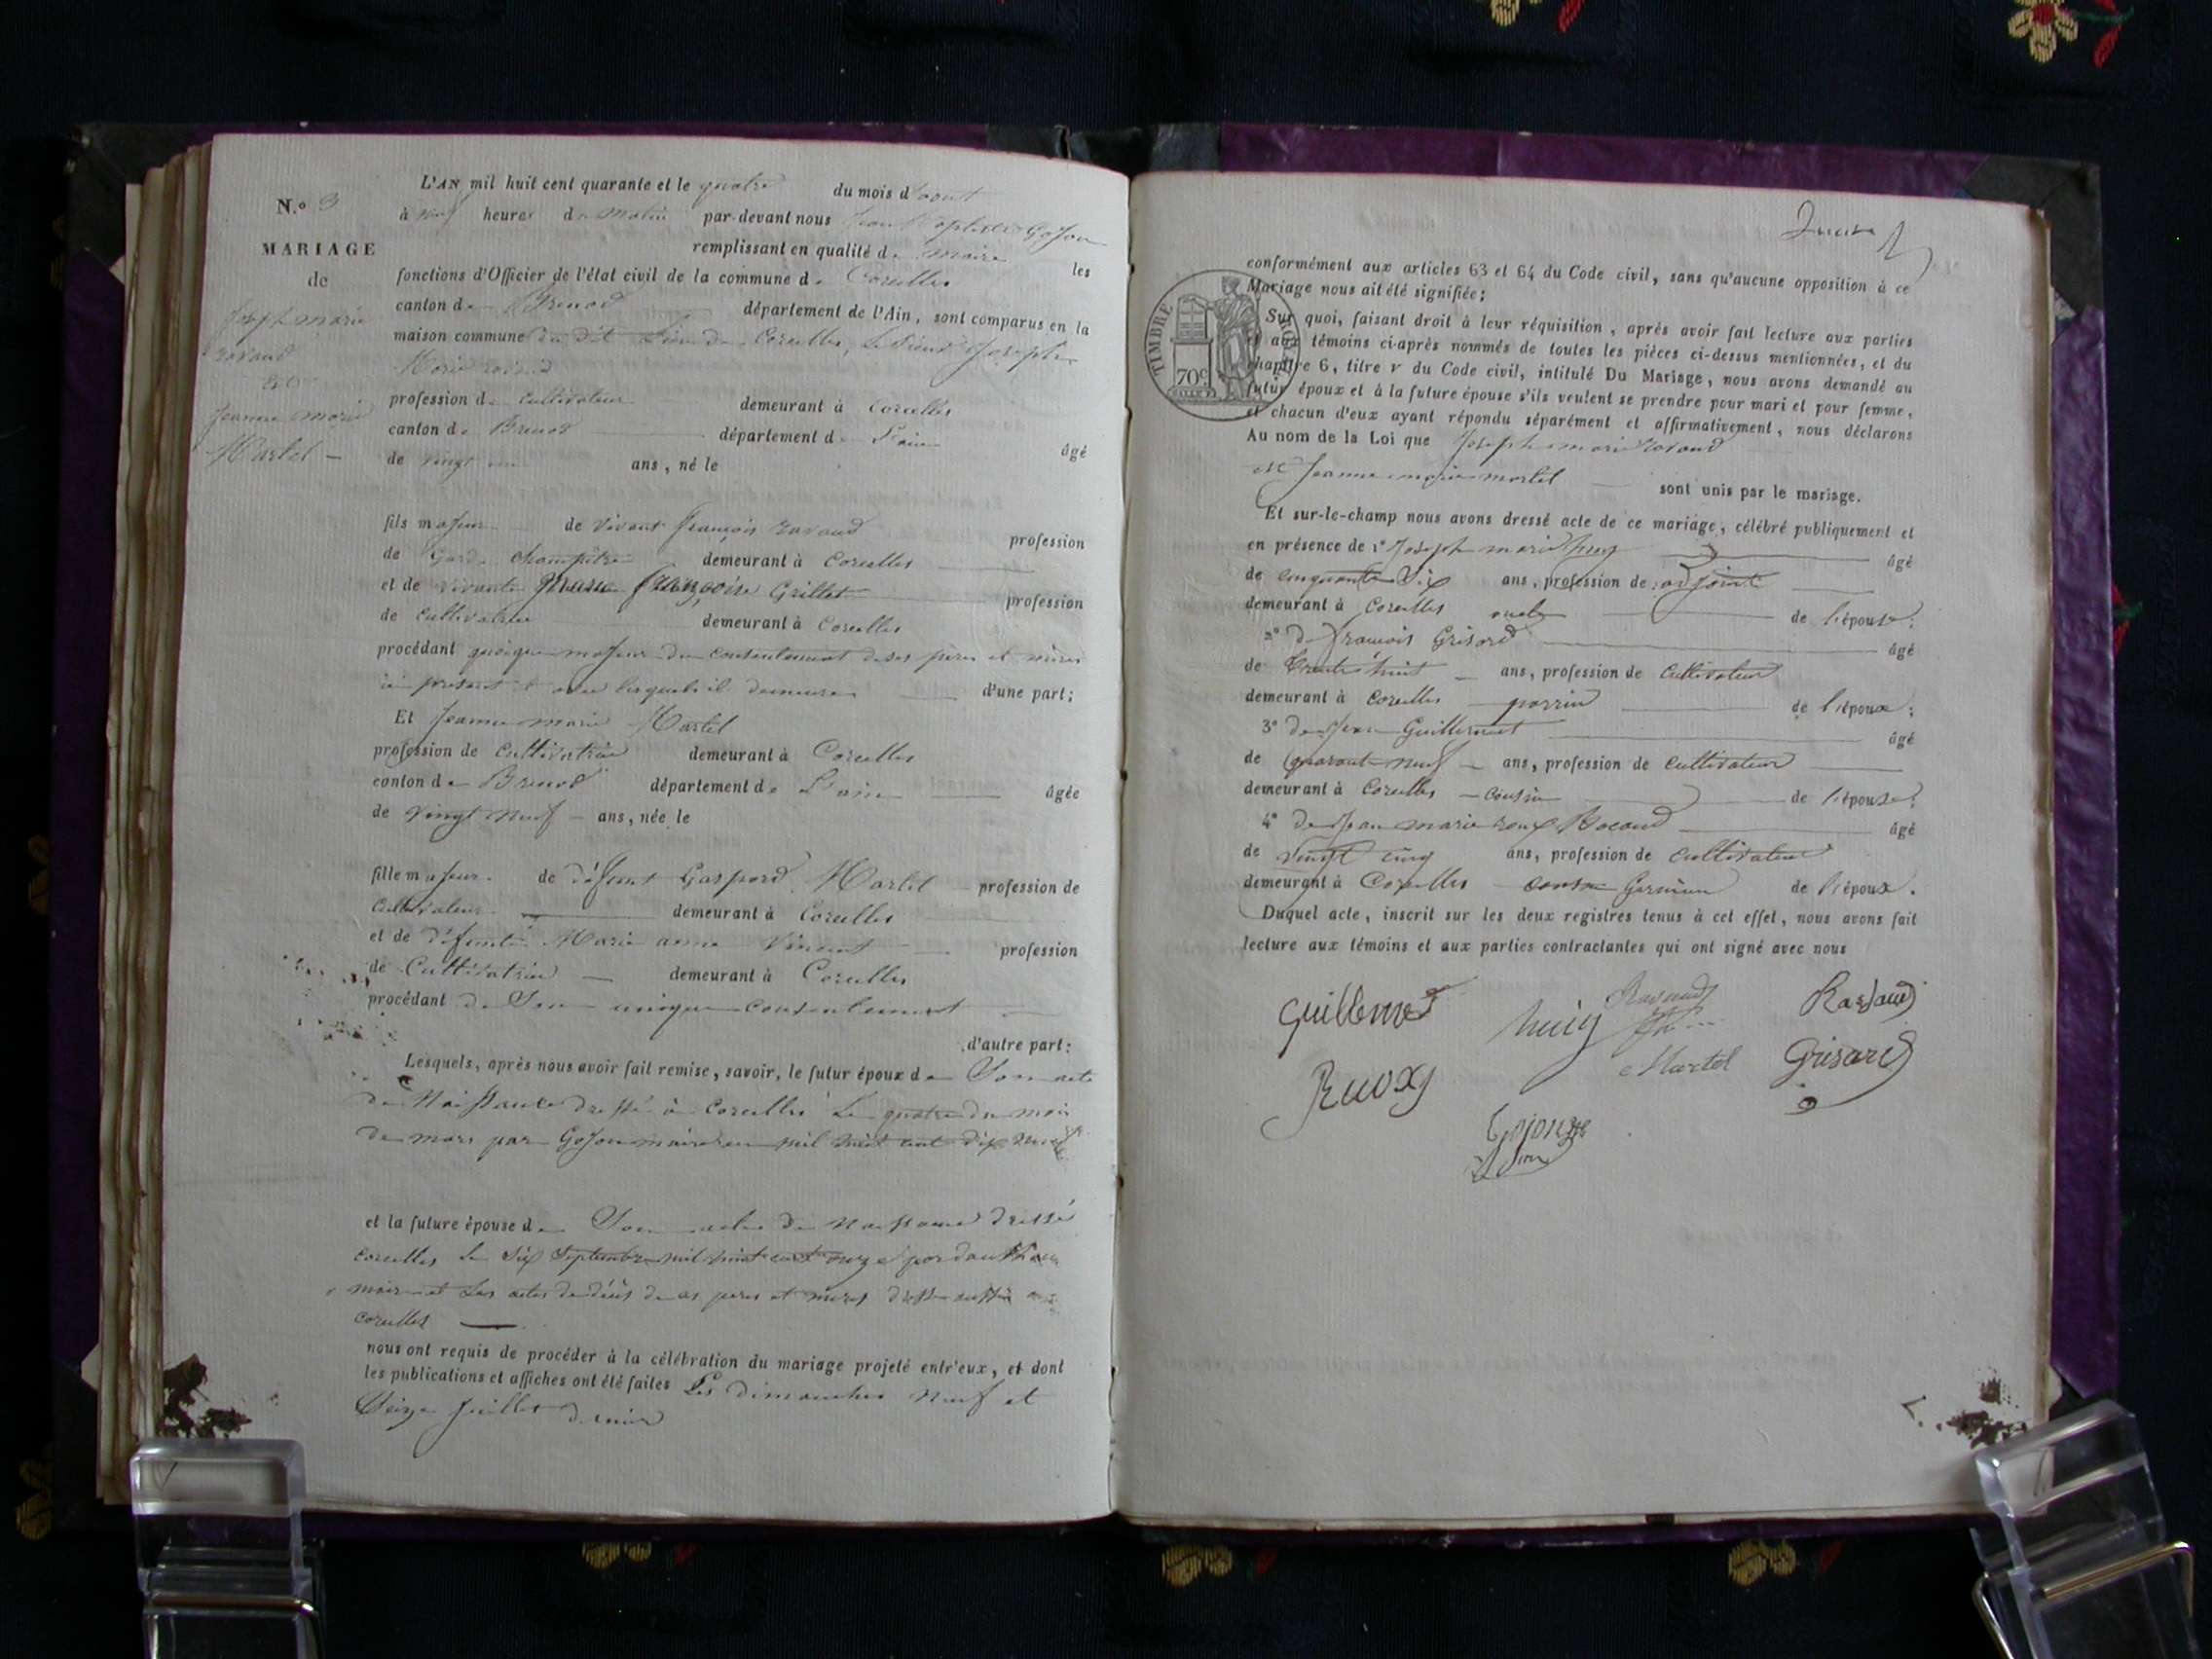 N.º 3
MARIAGE
de
Joseph marie
ravaud
et
Jeanne marie
Martel
L'AN mil huit cent quarante et le quatre du mois d'aout
à neuf heures du matin par-devant nous Jean Gojon
remplissant en qualité de maire les
fonctions d'Officier de l'état civil de la commune de Corcelles
canton de Brenod département de l'Ain, sont comparus en la
maison commune du dit lieu de Corcelles, Le Sieur Joseph
Marie ravaud
profession de cultivateur demeurant à Corcelles
canton de Brenod département de L'ain âgé
de vingt un ans, né le
fils majeur de vivant françois ravaud profession
de Garde champêtre demeurant à Corcelles
et de vivante françoise Grillet profession
de cultivatrice demeurant à Corcelles
procédant quoique majeur du consentement de ses pères et mères
ici present et avec lesquels il demeure d'une part;
Et Jeanne marie Martel
profession de cultivatrice demeurant à Corcelles
canton de Brenod département de L'ain âgée
de vingt neuf ans, née le
fille majeure de défunt Gaspard Martel profession de
cultivateur demeurant à Corcelles
et de défunte Marie anne Vincent profession
de Cultivatrice demeurant à Corcelles
procédant de Son unique consentement
d'autre part:
Lesquels, après nous avoir fait remise, savoir, le futur époux de Son acte
de Naissance dressé à Corcelles Le quatre du mois
de mars par Gojon maire en mil huit cent dix neuf
et la future épouse de Son acte de Naissance dressé
corcelles Le Six Septembre mil huit cent onze par
maire et Les actes de décès de ses pères et mères dressé aussi a
corcelles
nous ont requis de procéder à la célébration du mariage projeté entr'eux, et dont
les publications et affiches ont été faites Les dimanches neuf et
Seize Juillet dernier
conformément aux articles 63 et 64 du Code civil, sans qu'aucune opposition à ce
Mariage nous ait été signifiée;
TIMBRE ROYAL
70c
Sur quoi, faisant droit à leur réquisition, après avoir fait lecture aux parties
et aux témoins ci-après nommés de toutes les pièces ci-dessus mentionnées, et du
chapitre 6, titre v du Code civil, intitulé Du Mariage, nous avons demandé au
futur époux et à la future épouse s'ils veulent se prendre pour mari et pour femme,
et chacun d'eux ayant répondu séparément et affirmativement, nous déclarons
Au nom de la Loi que Joseph marie ravaud
et Jeanne marie martel sont unis par le mariage.
Et sur-le-champ nous avons dressé acte de ce mariage, célébré publiquement et
en présence de 1º Joseph marie huy âgé
de cinquante Six ans, profession de adjoint
demeurant à Corcelles oncle de l'épouse;
2º de françois Grisard âgé
de trente huit ans, profession de cultivateur
demeurant à Corcelles parrin de l'époux;
3º de Jean Guillermet âgé
de quarante neuf ans, profession de cultivateur
demeurant à Corcelles cousin de l'épouse;
4º de Jean marie roux âgé
de vingt cinq ans, profession de cultivateur
demeurant à Corcelles cousin Germain de l'époux.
Duquel acte, inscrit sur les deux registres tenus à cet effet, nous avons fait
lecture aux témoins et aux parties contractantes qui ont signé avec nous
Guillermet
Ravaud
Martel
Grisard